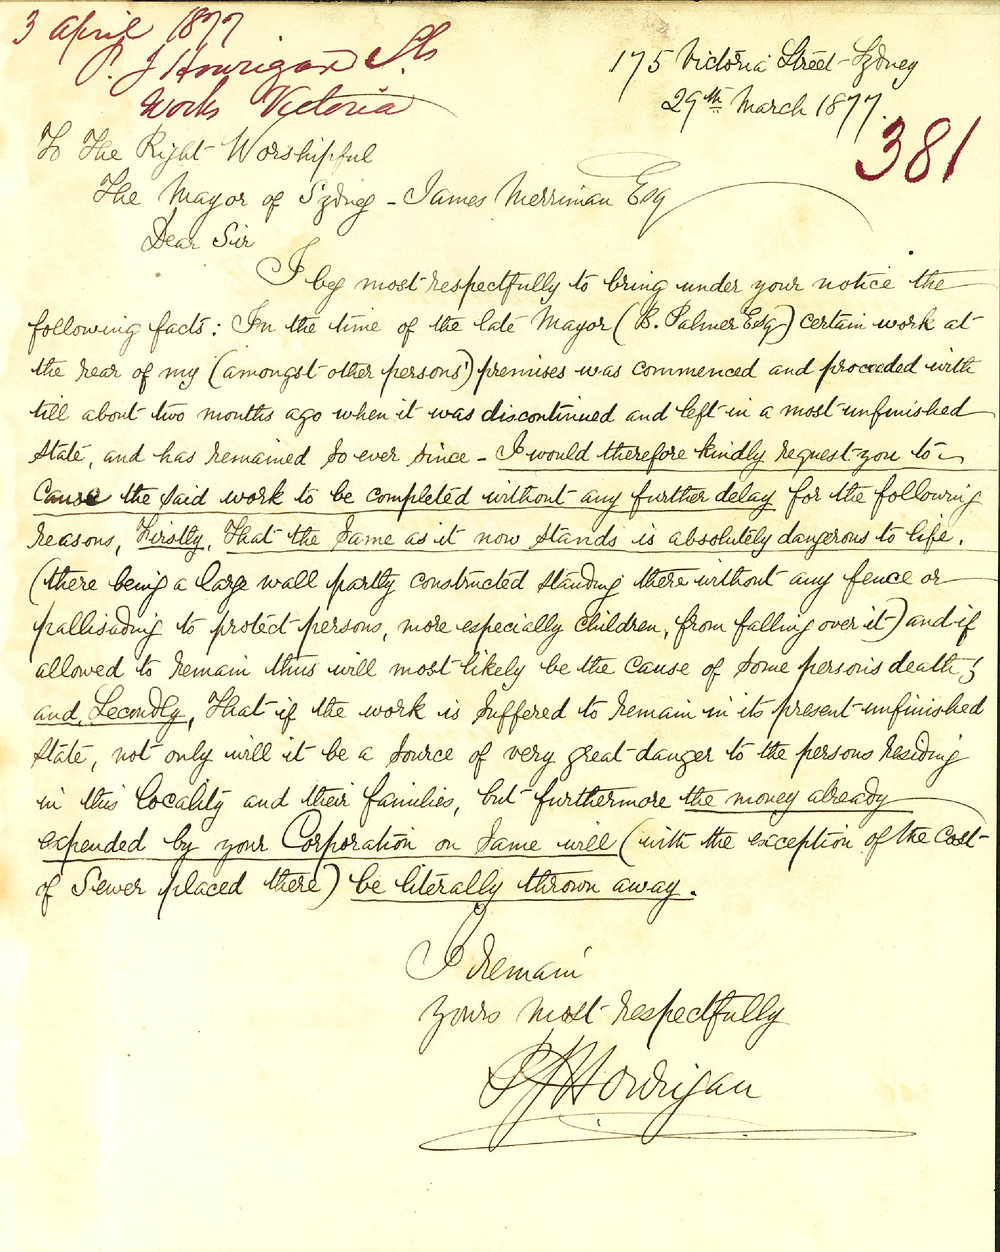 3 April 1877
P. J Hourigan St
Works Victoria
175 Victoria Street - Sydney
29th March 1877.
381
To The Right Worshipful
The Mayor of Sydney - James Merriman Esq
Dear Sir
I beg most respectfully to bring under your notice the
following facts: In the time of the late Mayor (B. Palmer Esq) certain work at
the rear of my (amongst other persons') premises was commenced and proceeded with
till about two months ago when it was discontinued and left in a most unfinished
state, and has remained so ever since - I would therefore kindly request you to
cause the said work to be completed without any further delay for the following
reasons, Firstly, That the same as it now stands is absolutely dangerous to life.
(there being a large wall partly constructed standing there without any fence or
pallisading to protect persons, more especially children, from falling over it) and if
allowed to remain thus will most likely be the cause of some person's death;
and, Secondly, That if the work is suffered to remain in its present unfinished
state, not only will it be a source of very great danger to the persons residing
in this locality and their families, but furthermore the money already
expended by your Corporation on same will (with the exception of the cost
of Sewer placed there) be literally thrown away.
I remain
Yours most respectfully
P J Hourigan